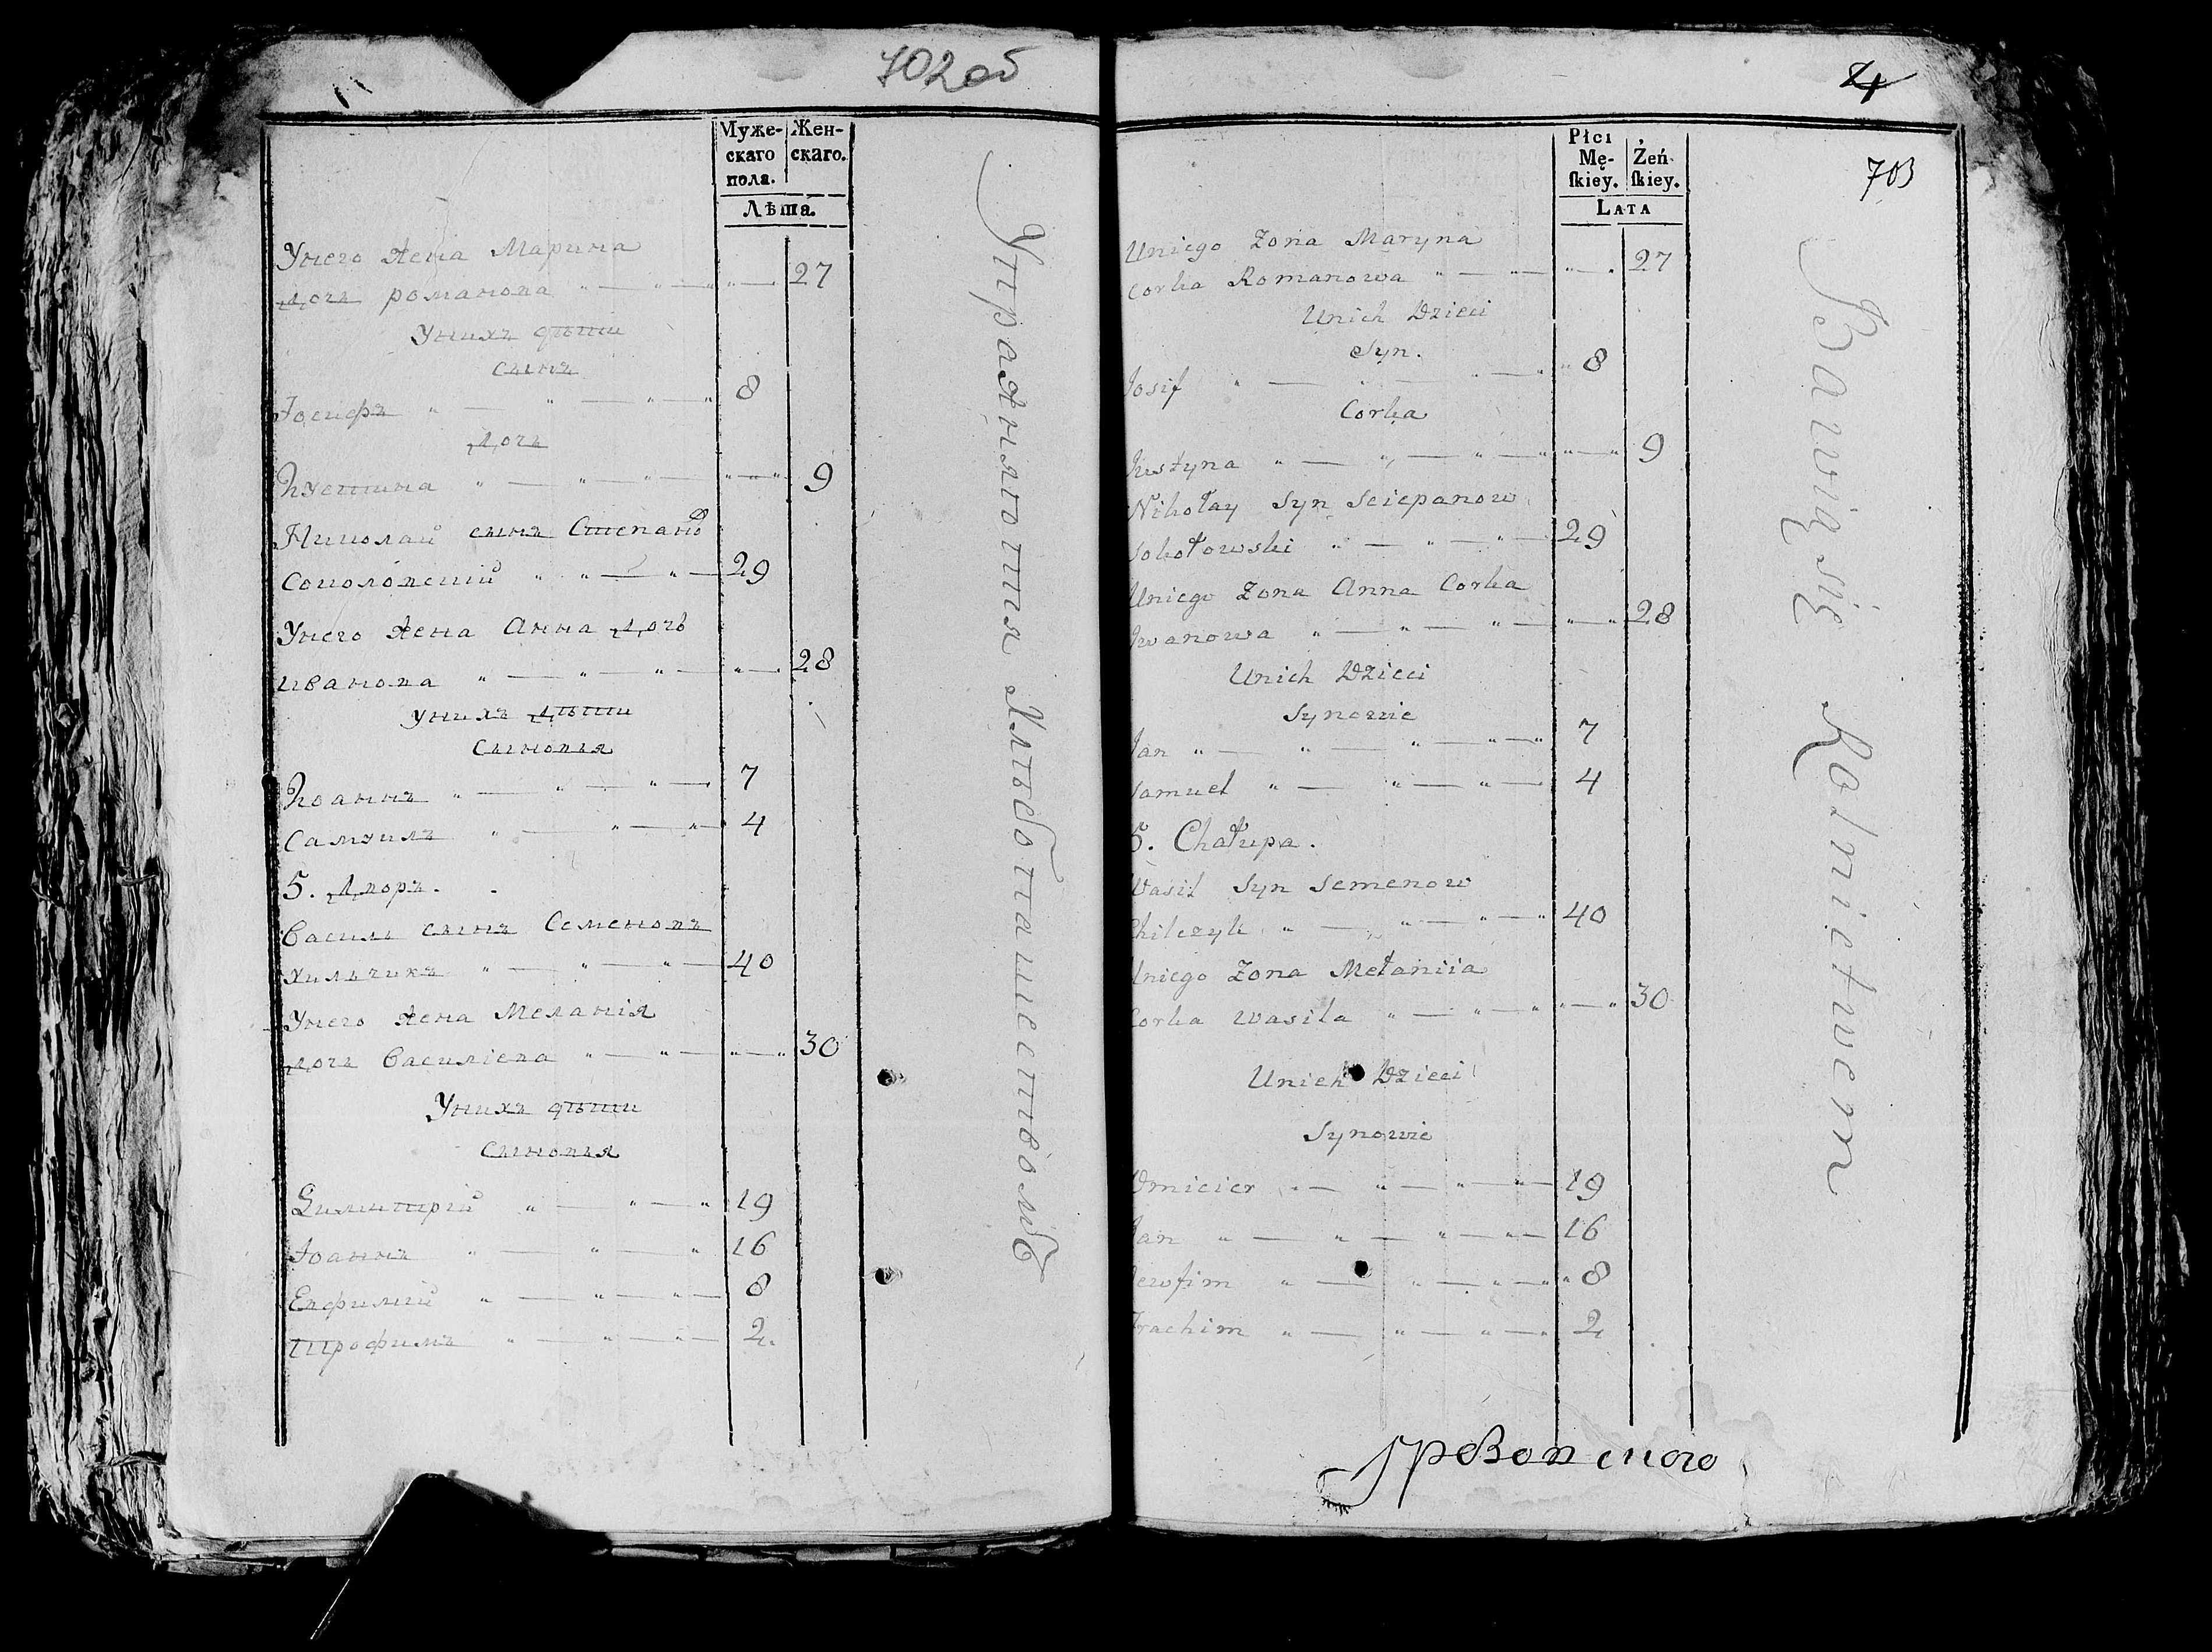 702 об
Муже-
скаго
пола.
Жен-
скаго.
Лѣта.
Унего жена Марина
дочь романова 27
Унихъ дѣти
сынъ
Іосифъ 8
дочь
Іустина 9
Николай сынъ Степановъ
Соколовскій 29
Унего жена Анна дочь
иванова 28
унихъ дѣти
Сыновья
Іоаннъ 7
Самуилъ 4
5. дворъ.
Василь сынъ Семеновъ
хильчикъ 40
Унего жена Меланія
дочь Василіева 30
Унихъ дѣти
сыновья
Димитрій 19
Іоаннъ 16
Евфимій 8
Трофимъ 2.
Упражняются Хлѣбопашествомъ
4
703
Płci
Mę-
skiey.
Żeń-
skiey.
Lata
Uniego Zona Maryna
Corka Romanowa 27
Unich Dzieci
Syn.
Josif 8
Corka
Justyna 9
Nikołay Syn Sciepanow
Sokołowski 29
Uniego Zona Anna Corka
Jwanowa 28
Unich Dzieci
Synowie
Jan 7
Samuel 4
5. Chałupa.
Wasil Syn Semenow
Chilczyk 40
Uniego Zona Mełaniia
Corka Wasila 30
Unich Dzieci
Synowie
Dmicier 19
Jan 16
Jewfim 8
Trachim 2
Bawią się Rolnictwem